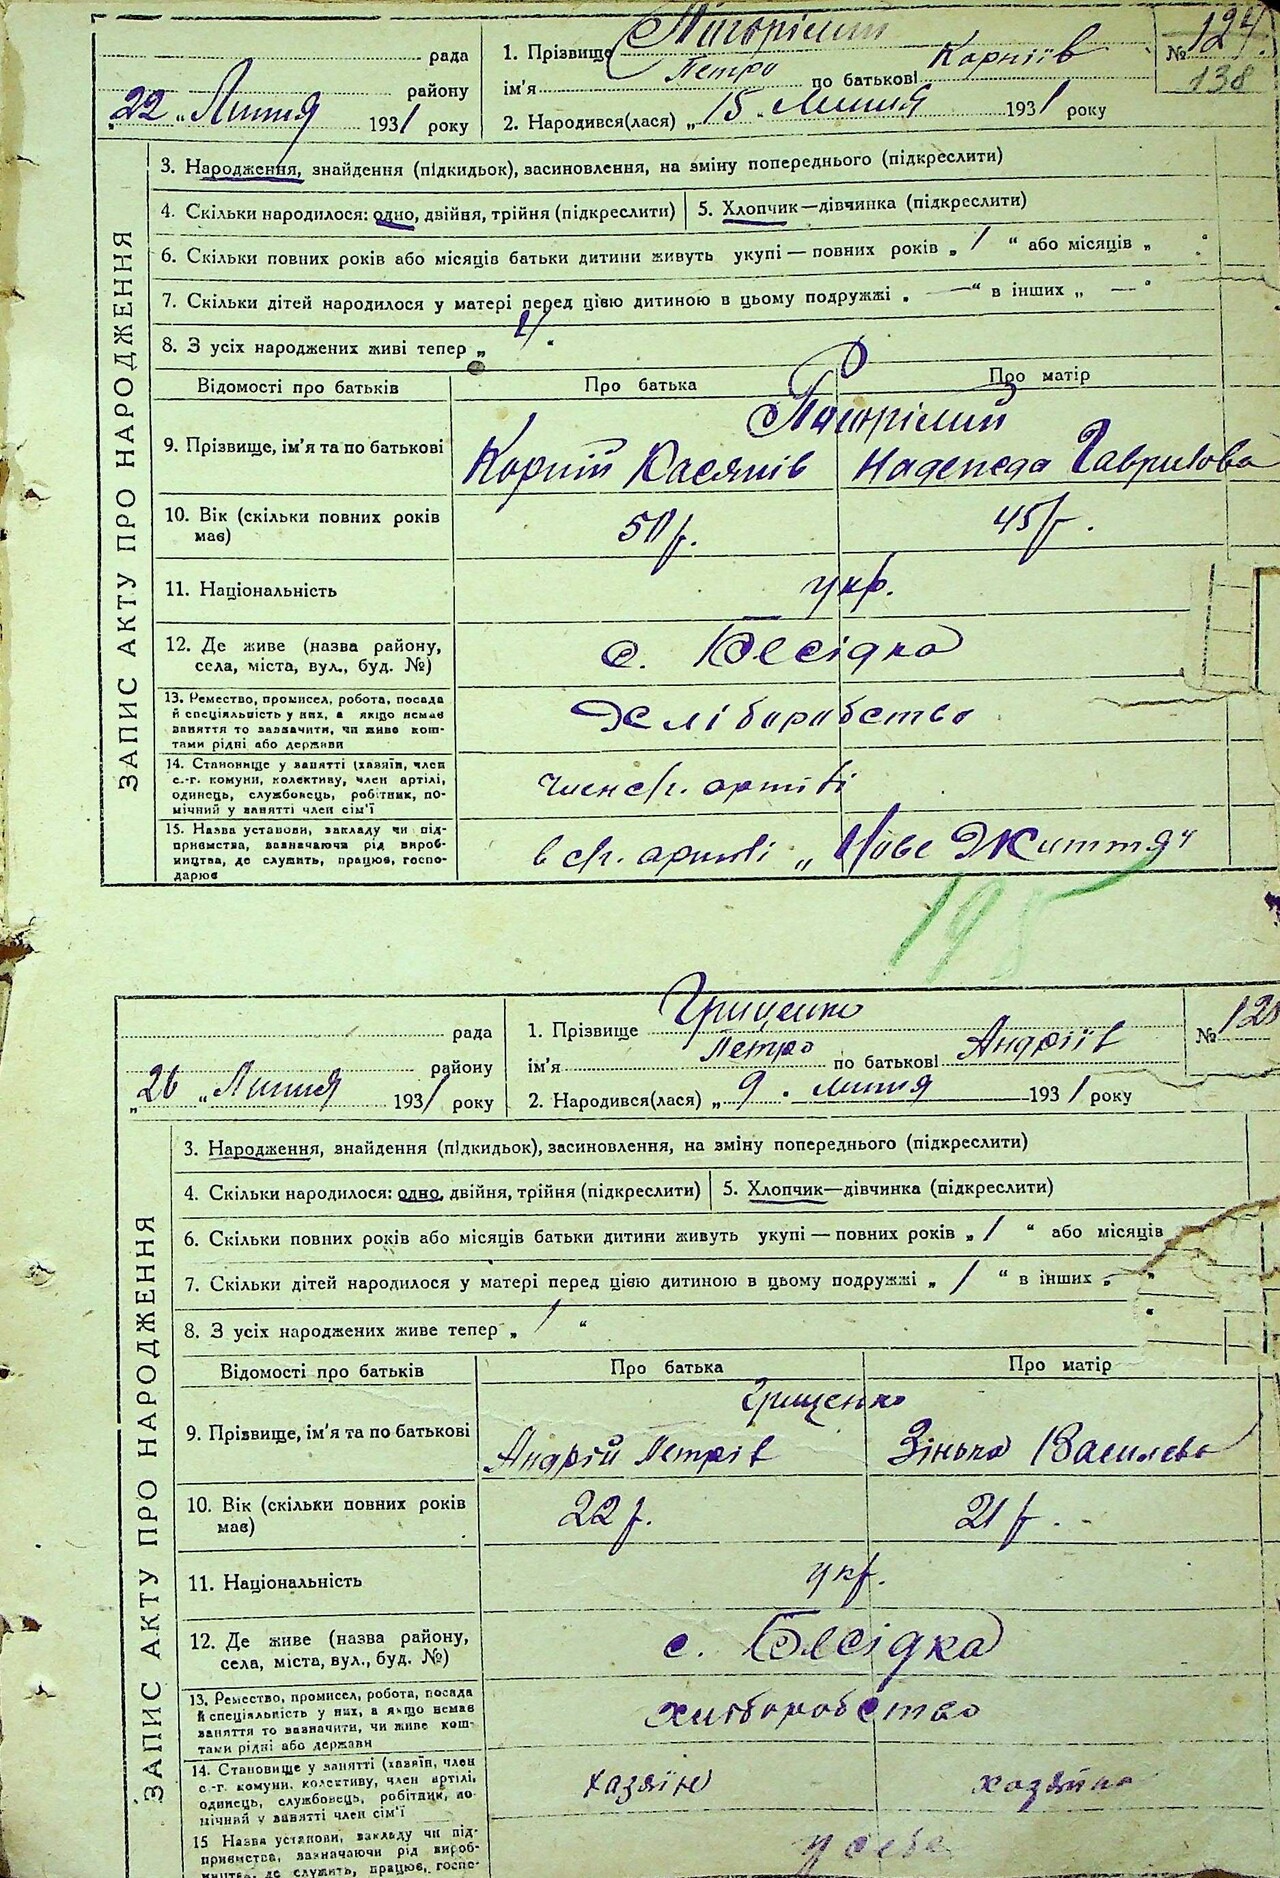 1. Прізвище Пигорілий № 124.
рада
ім'я Петро по батькові Корніїв 138
району
„22 „ Липня 1931 року 2. Народився(лася) „ 15 „ Липня 1931 року
ЗАПИС АКТУ ПРО НАРОДЖЕННЯ
3. Народження, знайдення (підкидьок), засиновлення, на зміну попереднього (підкреслити)
4. Скільки народилося: одно, двійня, трійня (підкреслити) 5. Хлопчик—дівчинка (підкреслити)
6. Скільки повних років або місяців батьки дитини живуть укупі — повних років „ 1 “ або місяців „
7. Скільки дітей народилося у матері перед цією дитиною в цьому подружжі „ — “ в інших „ — “
8. З усіх народжених живі тепер „ “
Відомості про батьків Про батька Про матір
Пигорілий
9. Прізвище, ім'я та по батькові Корній Касянів Надежда Гаврилова
10. Вік (скільки повних років має) 50 р. 45 р.
11. Національність укр.
12. Де живе (назва району, села, міста, вул., буд. №) с. Бесідка
13. Ремество, промисел, робота, посада
й спеціяльність у них, а якщо немає
заняття то зазначити, чи живе кош-
тами рідні або держави
Хліборобство
14. Становище у занятті (хазяїн, член
с.-г. комуни, колективу, член артілі,
одинець, службовець, робітник, по-
мічний у занятті член сім'ї
член с/г. артілі
15. Назва установи, закладу чи під-
приємства, зазначаючи рід вироб-
ництва, де служить, працює, госпо-
дарює
в с/г. артілі „Нове Життя“
195
1. Прізвище Грищенко №
рада
ім'я Петро по батькові Андріїв
району
„26 „ Липня 1931 року 2. Народився(лася) „ 9 . липня 1931 року
ЗАПИС АКТУ ПРО НАРОДЖЕННЯ
3. Народження, знайдення (підкидьок), засиновлення, на зміну попереднього (підкреслити)
4. Скільки народилося: одно, двійня, трійня (підкреслити) 5. Хлопчик—дівчинка (підкреслити)
6. Скільки повних років або місяців батьки дитини живуть укупі — повних років „ 1 “ або місяців
7. Скільки дітей народилося у матері перед цією дитиною в цьому подружжі „ 1 “ в інших „ “
8. З усіх народжених живе тепер „ 1 “
Відомості про батьків Про батька Про матір
Грищенко
9. Прізвище, ім'я та по батькові Андрій Петрів Зінька Василева
10. Вік (скільки повних років має) 22 р. 21 р.
11. Національність укр.
12. Де живе (назва району, села, міста, вул., буд. №) с. Бесідка
13. Ремество, промисел, робота, посада
й спеціяльність у них, а якщо немає
заняття то зазначити, чи живе кош-
тами рідні або держави
хліборобство
14. Становище у занятті (хазяїн, член
с.-г. комуни, колективу, член артілі,
одинець, службовець, робітник, по-
мічний у занятті член сім'ї
хазяїн хазяйка
15 Назва установи, закладу чи під-
приємства, зазначаючи рід вироб-
ництва, де служить, працює, госпо-
у себе